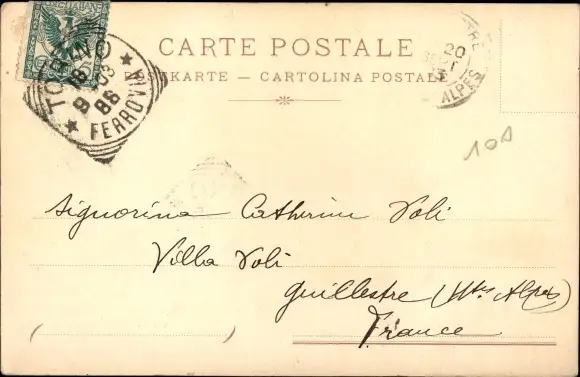 CARTE POSTALE
POSTKARTE – CARTOLINA POSTALE
TORINO
FERROVIA
18
9 03
8S
20
ALPES
100
Signorina Catherine Voli
Villa Voli
Guillestre (Htes Alpes)
France